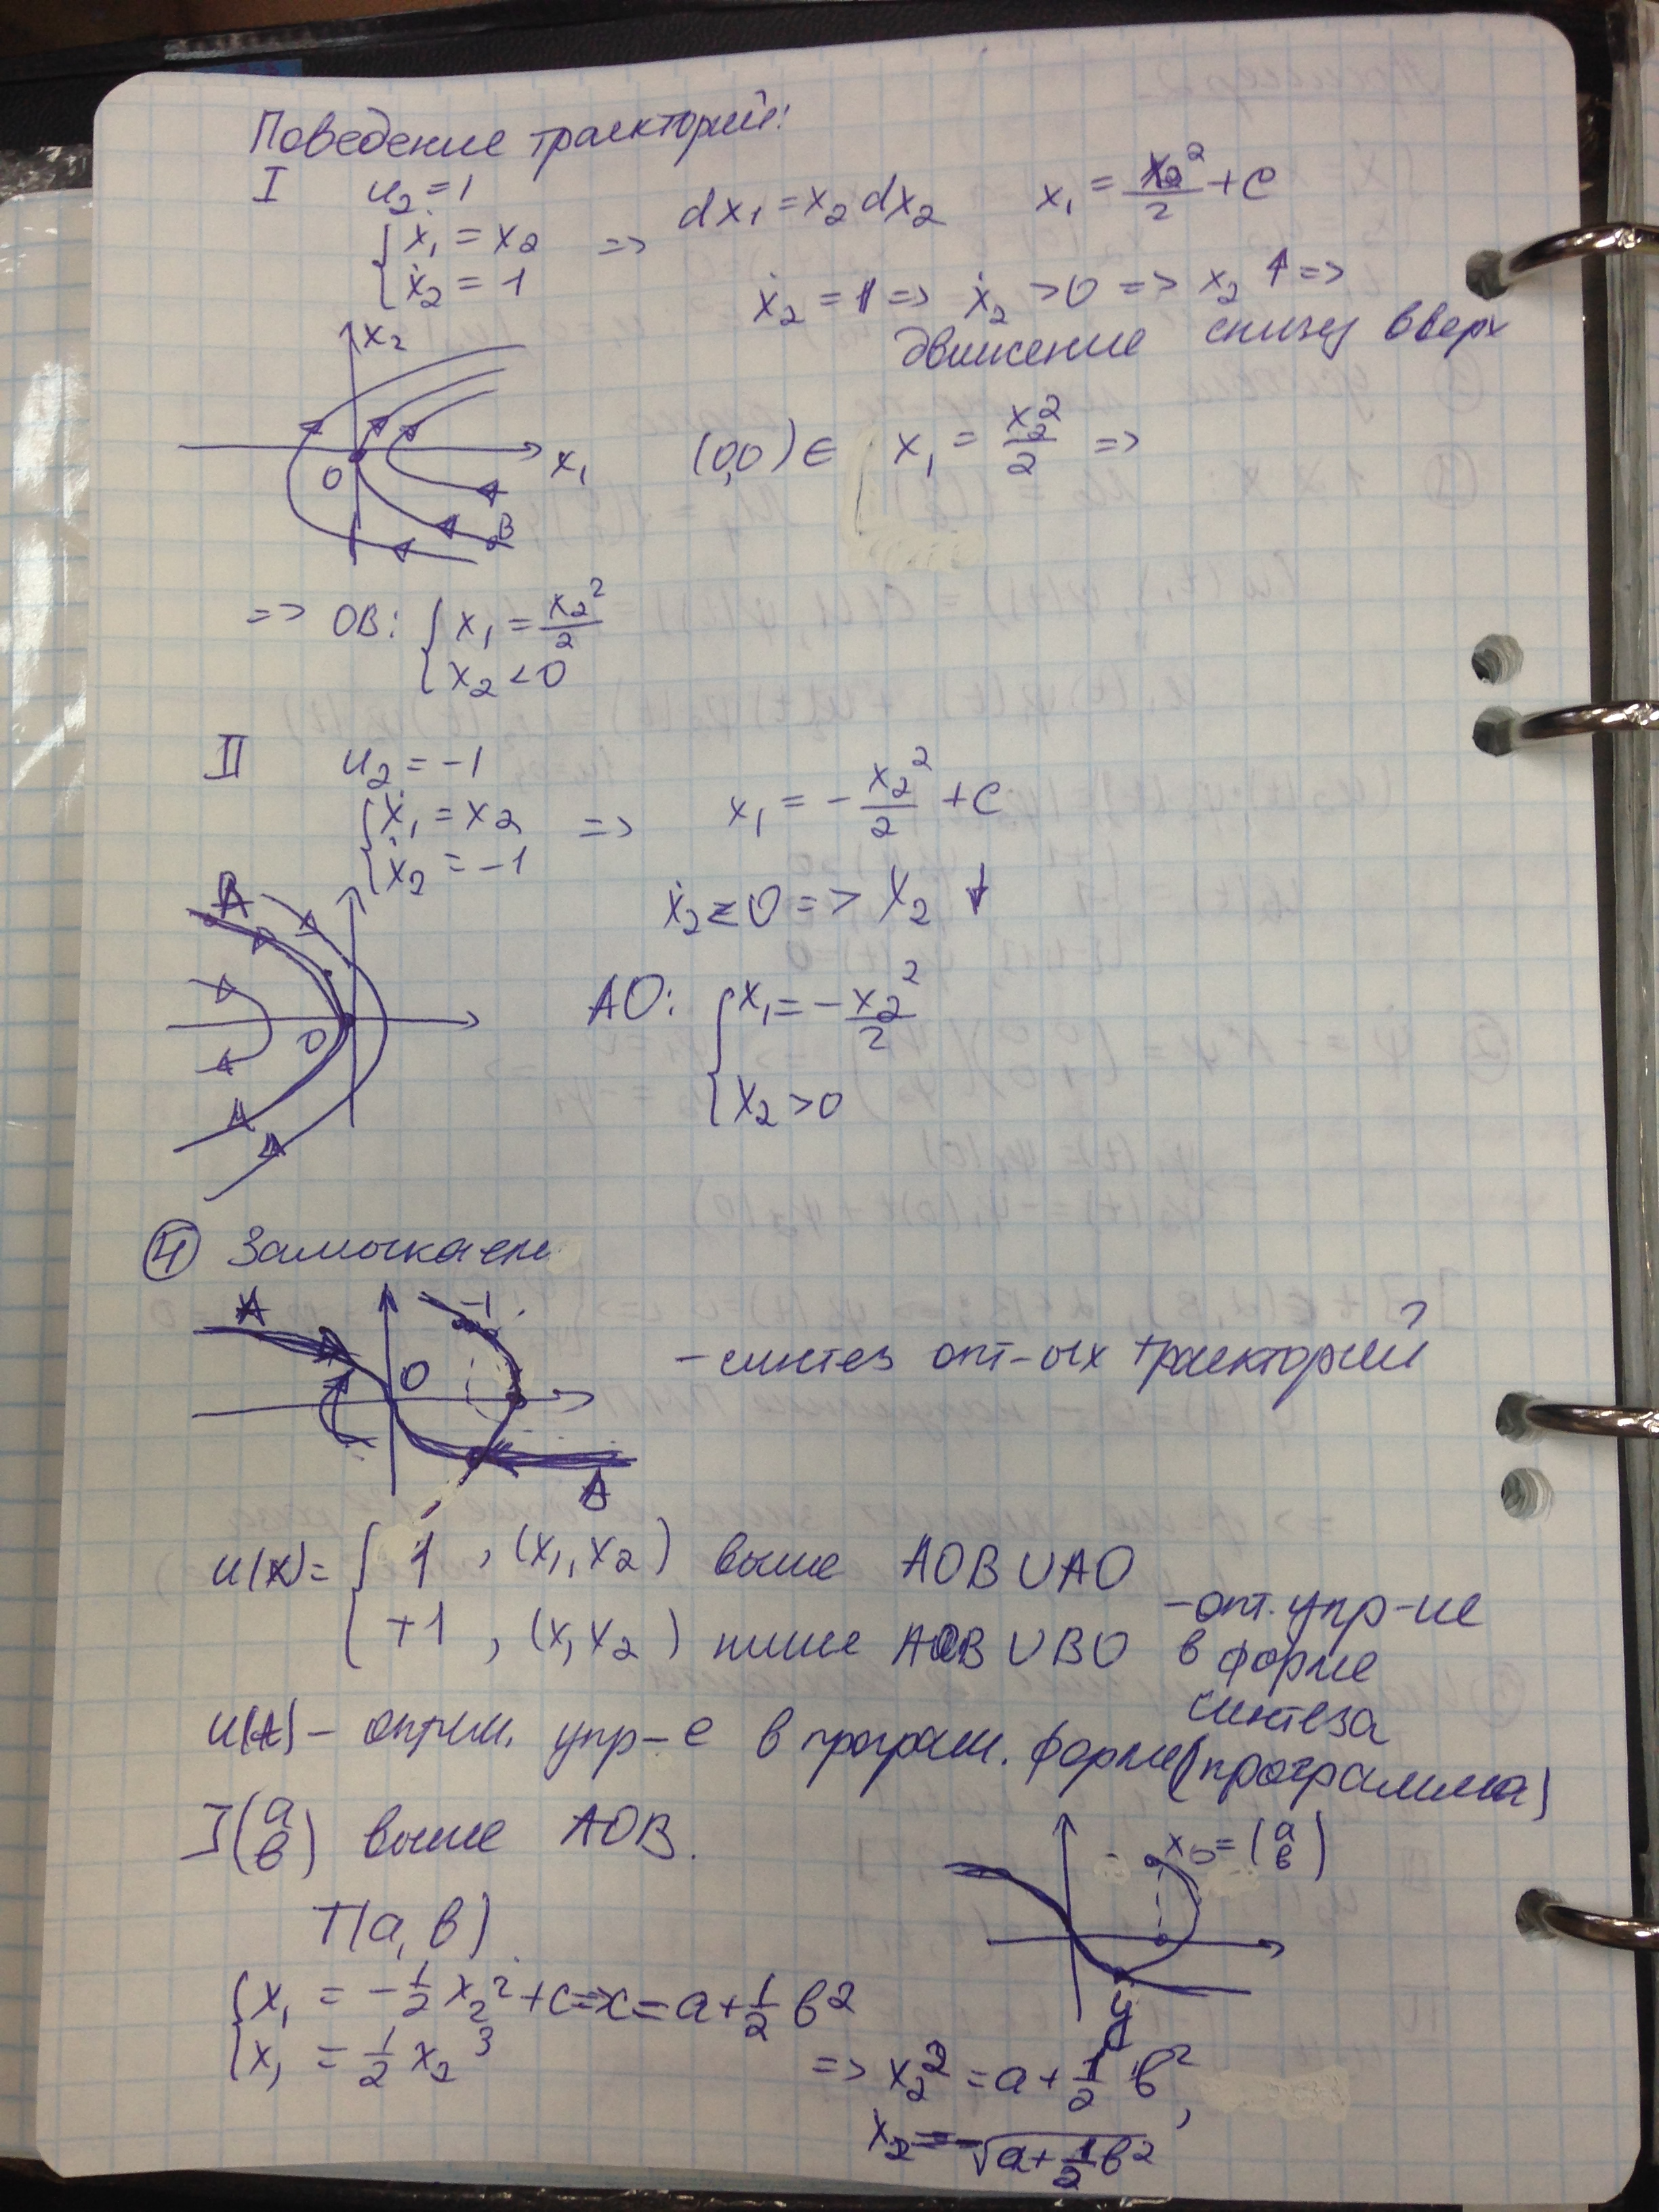 Поведение траекторий:
I u₂ = 1
{ ẋ₁ = x₂
ẋ₂ = 1 => dx₁ = x₂dx₂ x₁ = x₂²/2 + C
ẋ₂ = 1 => ẋ₂ > 0 => x₂ ↑ =>
движение снизу вверх
x₂
x₁
O
B
(0,0) ∈ x₁ = x₂²/2 =>
=> OB: { x₁ = x₂²/2
x₂ < 0
II u₂ = -1
{ ẋ₁ = x₂
ẋ₂ = -1 => x₁ = - x₂²/2 + C
ẋ₂ < 0 => x₂ ↓
A
O
AO: { x₁ = - x₂²/2
x₂ > 0
④ Замыкаем
A
-1
O
B
- синтез опт-ых траекторий
u(x) = { 1 , (x₁, x₂) выше AOB ∪ AO
+1 , (x, x₂) ниже AOB ∪ BO
- опт. упр-ие
в форме
синтеза
u(t) - оптим. упр-е в програм. форме (программа)
](a в) выше AOB.
x₀ = (a в)
y
T(a, в).
{ x₁ = -1/2 x₂² + c => c = a + 1/2 в²
x₁ = 1/2 x₂³
=> x₂² = a + 1/2 в²,
x₂ = -√(a + 1/2 в²)